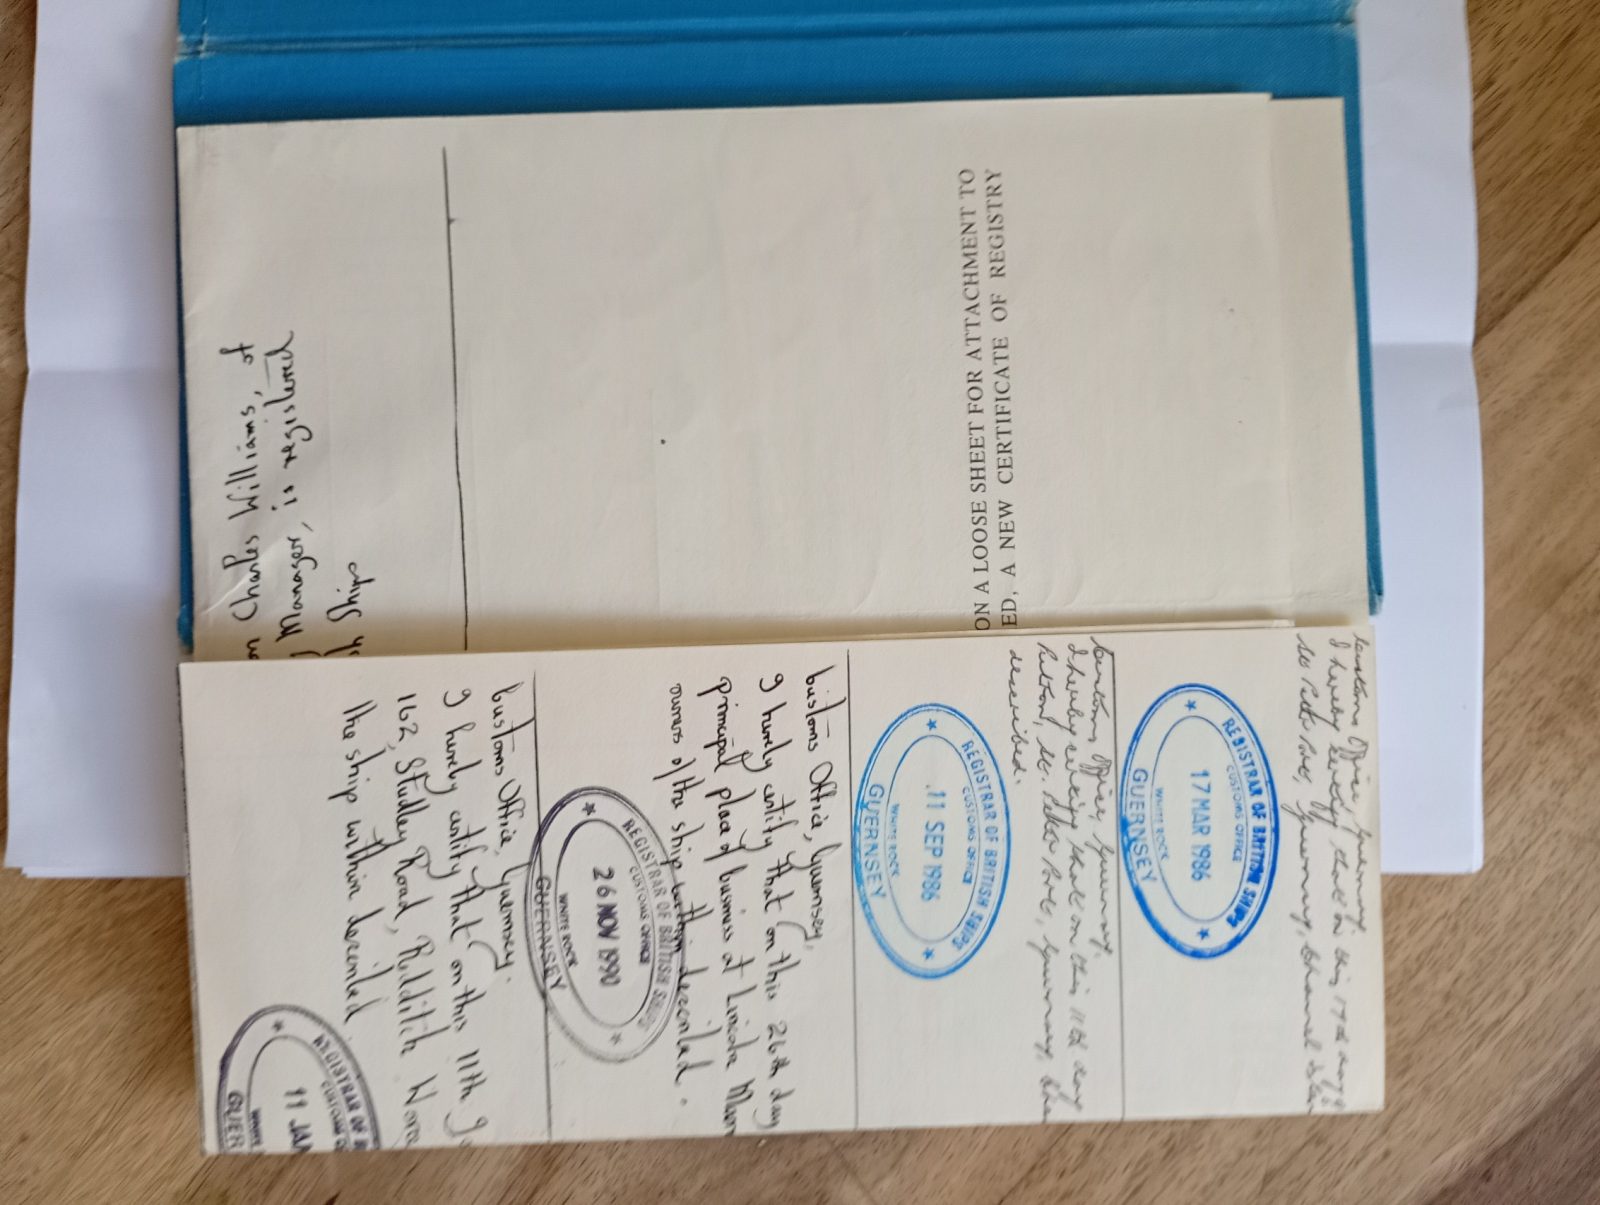 Customs Office, Guernsey.
I hereby certify that on this 17th day of
St Peter Port, Guernsey, Channel
REGISTRAR OF BRITISH SHIPS
CUSTOMS OFFICE
17 MAR 1986
WHITE ROCK
GUERNSEY
Customs Office, Guernsey.
I hereby certify that on this 11th day
St. Peter Port, Guernsey,
described.
REGISTRAR OF BRITISH SHIPS
CUSTOMS OFFICE
11 SEP 1986
WHITE ROCK
GUERNSEY
Customs Office, Guernsey,
I hereby certify that on this 26th day
principal place of business at Lincoln
owners of the ship within described.
REGISTRAR OF BRITISH SHIPS
CUSTOMS OFFICE
26 NOV 1990
WHITE ROCK
GUERNSEY
Customs Office, Guernsey.
I hereby certify that on this 11th
162, Studley Road, Redditch
the ship within described
REGISTRAR OF
CUSTOMS
11 JAN
WHITE
GUER
Charles Williams, of
Manager, is registered
Ship
ON A LOOSE SHEET FOR ATTACHMENT TO
ED, A NEW CERTIFICATE OF REGISTRY